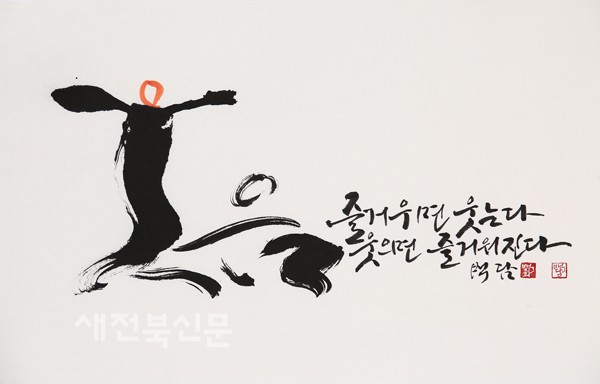 웃음
즐거우면 웃는다
웃으면 즐거워진다
백담
새전북신문